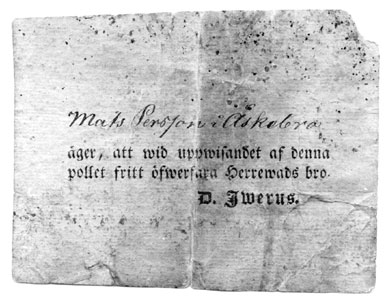 Mats Persson i Askebro
äger, att wid uppwisandet af denna
pollet fritt öfwerfara Herrewads bro.
D. Iwerus.